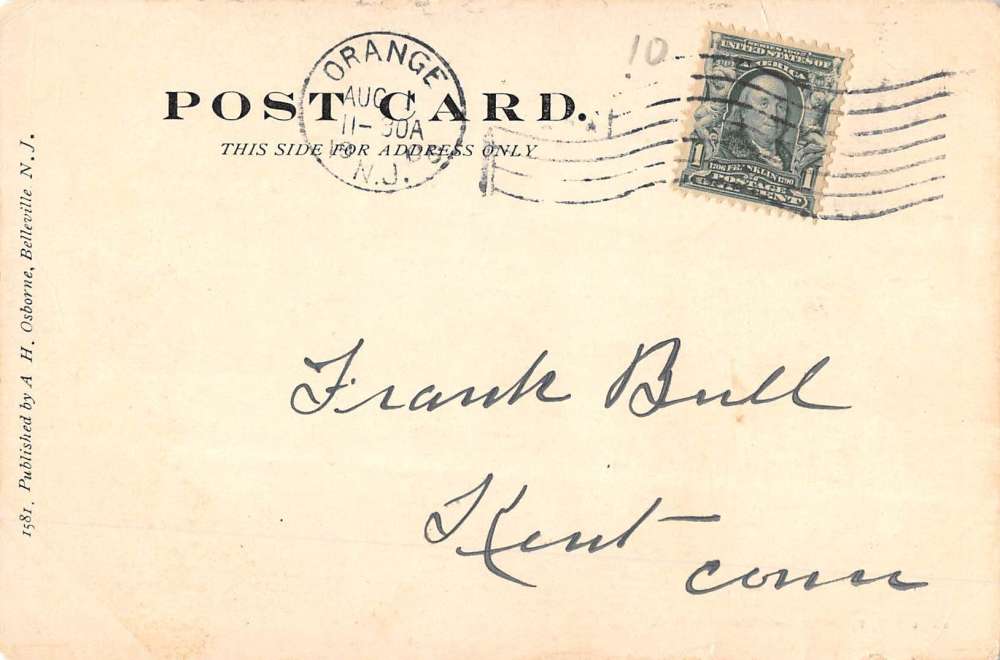 10
POST CARD.
THIS SIDE FOR ADDRESS ONLY
ORANGE
AUG 1
11-30A
N.J.
UNITED STATES OF
AMERICA
1 1706 FRANKLIN 1790 1
POSTAGE
ONE CENT
Frank Bull
Kent
conn
1581. Published by A. H. Osborne, Belleville N.J.